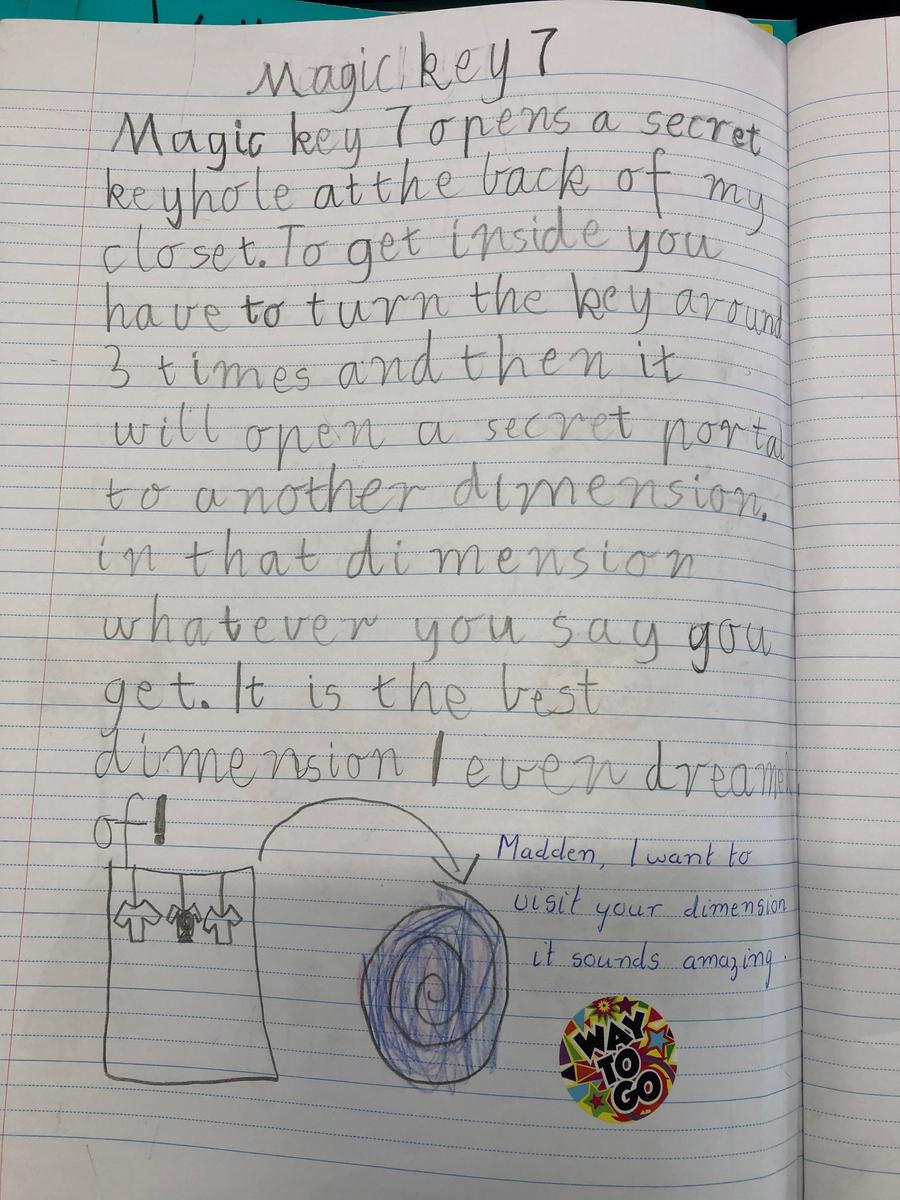 Magic key 7
Magic key 7 opens a secret
keyhole at the back of my
closet. To get inside you
have to turn the key around
3 times and then it
will open a secret portal
to another dimension.
in that dimension
whatever you say you
get. It is the best
dimension I even dreamed
of!
Madden, I want to
visit your dimension
it sounds amazing.
WAY
TO
GO